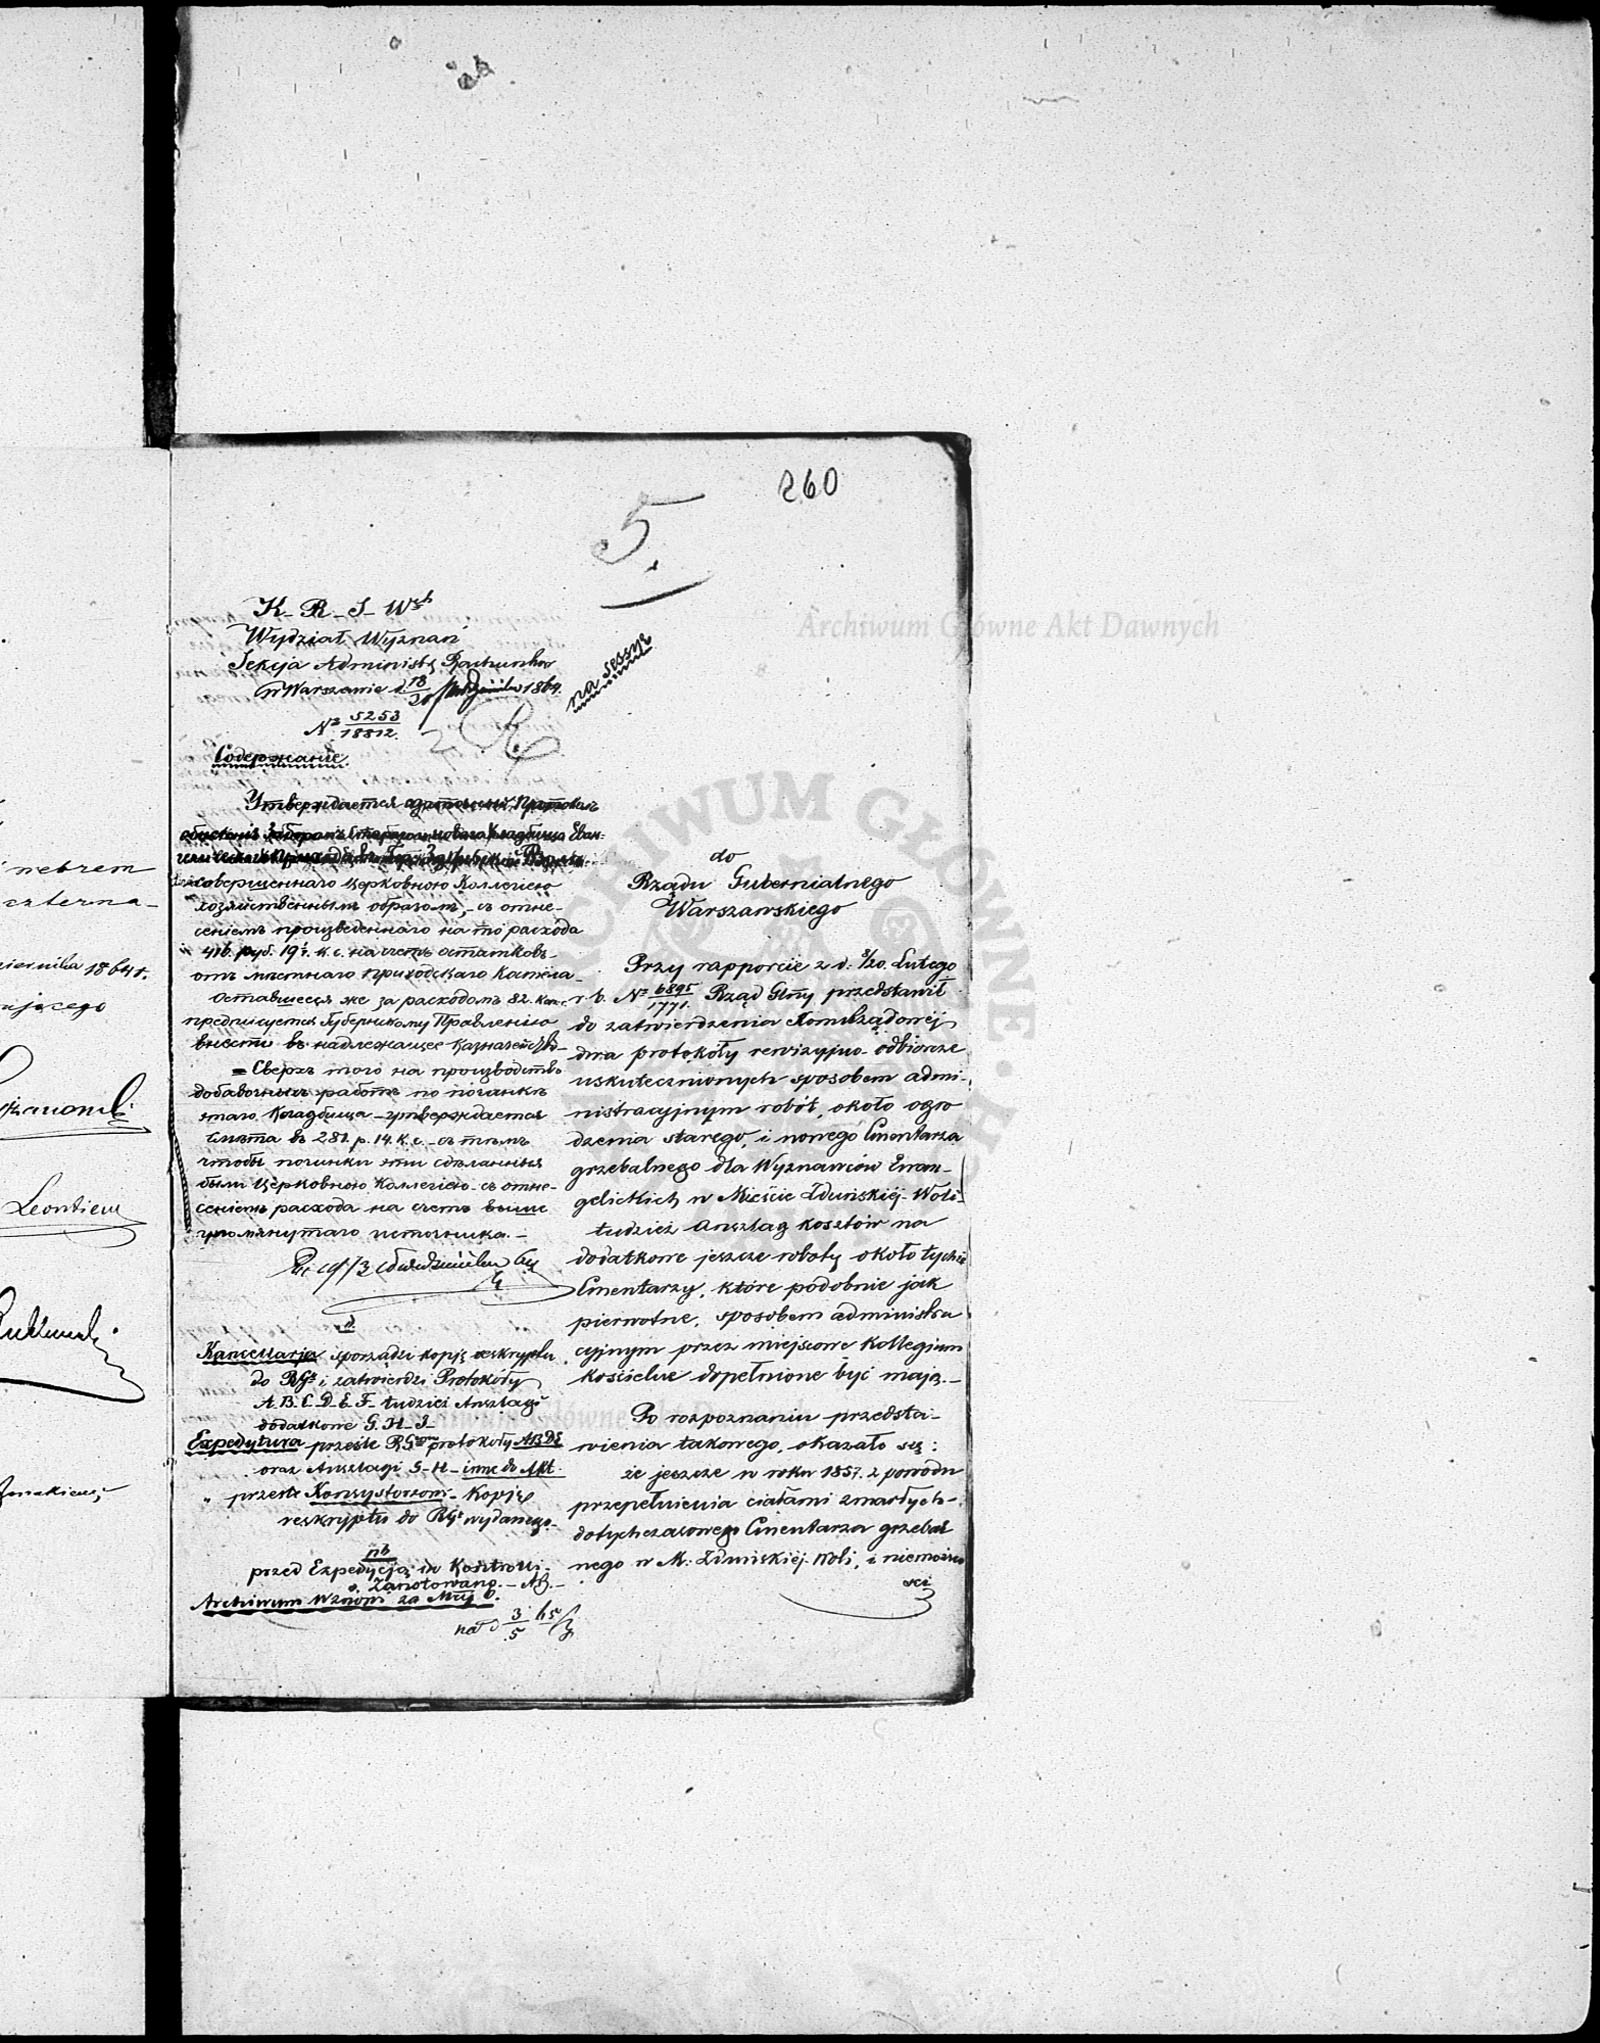 260
5.
K. R. S. W.
Wydział Wyznań
Sekcja Administ. Rachunkow
w Warszawie d 18/30 1864.
№ 5253/18812.
na sessyę
Содержание.
Утверждается
Еван-
совершеннаго Церковною Коллегіею
хозяйственнымъ образомъ, съ отне-
сеніемъ произведеннаго на то расхода
416. руб. 19½. к. с. на счетъ остатковъ
отъ мѣстнаго приходскаго капитала
Оставшееся же за расходомъ 82. коп.
предписуется Губернскому Правленію
внести въ надлежащее Казначейство
= Сверхъ того на производство
добавочныхъ работъ по починкѣ
этаго Кладбища – утверждается
смѣта въ 281. р. 14. к. с. – съ тѣмъ
чтобы починки эти сдѣланныя
были Церковною Коллегіею – съ отне-
сеніемъ расхода на счетъ выше
упомянутаго источника. –
Kancellarja sporządzi kopję reskryptu
do RGo i zatwierdzi Protokóły
A. B. C. D. E. F. tudzież Anszlagi
dodatkowe G. H. I.
Expedytura prześle RGowi protokóły ABDE
oraz Anszlagi G-H- inne do Akt.
" prześle Konsystorzowi – Kopję
reskryptu do RGo wydanego.
nb
przed Expedycją do Kontroli.
Zanotowano. – AB. –
Archiwum wznowi za Mcy 6.
na d 3/5 65
do
Rządu Gubernialnego
Warszawskiego
Przy rapporcie z d. 8/20. Lutego
r. b. № 6895/1771. Rząd Glny przedstawił
do zatwierdzenia Kom: Rządowej
dwa protokóły rewizyjno-odbiorcze
uskutecznionych sposobem admi-
nistracyjnym robót, około ogro
dzenia starego, i nowego Cmentarza
grzebalnego dla Wyznawców Ewan-
gelickich w Mieście Zduńskiéj-Woli
tudzież Anszlag kosztów na
dodatkowe jeszcze roboty około tychże
Cmentarzy, które podobnie jak
pierwotne, sposobem administra
cyjnym przez miejscowe Kollegium
kościelne dopełnione być mają. –
Po rozpoznaniu przedsta-
wienia takowego, okazało się:
że jeszcze w roku 1857. z powodu
przepełnienia ciałami zmarłych-
dotychczasowego Cmentarza grzebal
nego w M. Zduńskiéj-Woli, i niemożno
ści
nebrem
czterna-
1864 r.
ującego
Leontiew
Archiwum Główne Akt Dawnych
ARCHIWUM GŁÓWNE AKT DAWNYCH